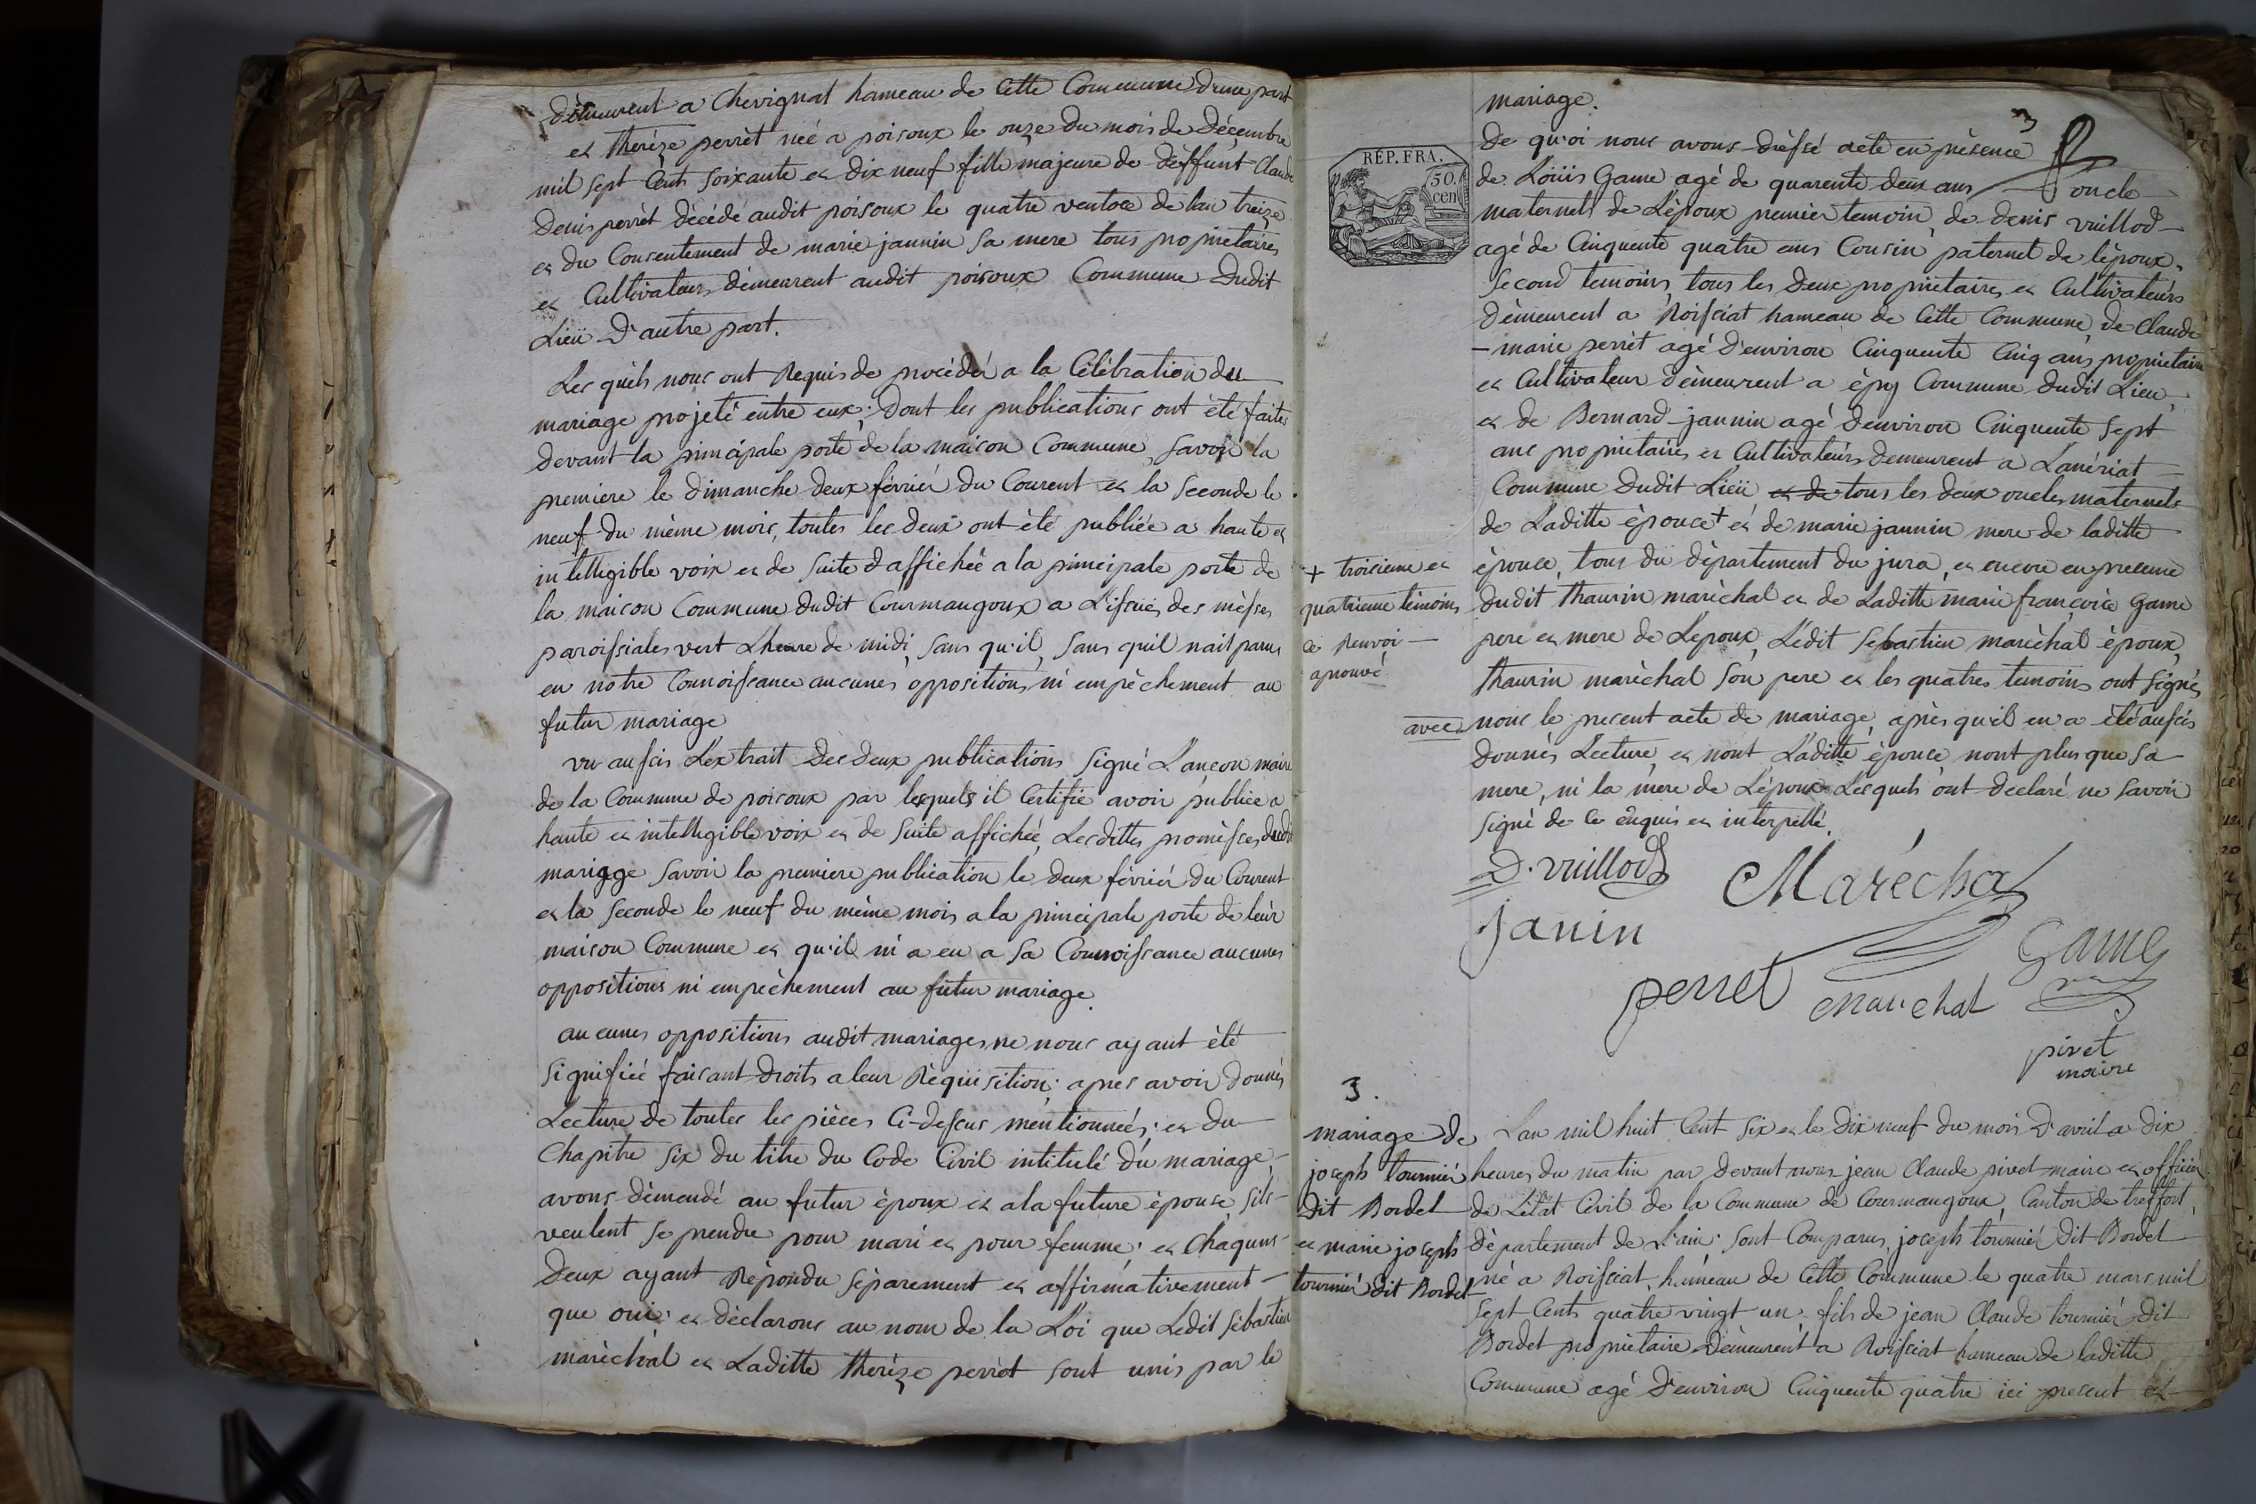 dèmeurent a Chevignat hameau de Cette Commune d'une part
et thérèze perrèt neé a poisoux le onze du mois de Décembre
mil sept Cents soixante et dix neuf fille majeure de dèffunt Claude
Denis perrèt dècèdé audit poisoux le quatre ventose de l'an treize
et du Consentement de marie jannin sa mere tous propriètaires
et Cultivateurs dèmeurent audit poisoux Commune dudit
Lieü D'autre part.
Les quèls nous ont Requis de procèdér a la Cèlèbration du
mariage projeté entre eux; dont les publications ont èté faites
devant la principale porte de la maison Commune, savoir la
premiere le dimanche deux février du Courent et la Seconde le
neuf du mème mois, toutes les deux ont èté publiée a haute et
intelligible voix et de suite d affichée a la principale porte de
la maison Commune dudit Courmangoux a L'issuë des mèsses
paroissiales vert Lheure de midi, sans qu'il, sans quil nait parus
en notre Connoissance aucunes oppositions ni empèchement au
futur mariage
vu aussis L'extrait des deux publications signé L'ançon maire
de la Commune de poisoux par lesquels il Certifie avoir publiée a
haute et intelligible voix et de suite affichée, Lesdittes promèsses dudit
mariage savoir la premiere publication le deux fèvriér du Courent
et la seconde le neuf du mème mois a la principale porte de leur
maison Commune et qu'il ni a eu a sa Connoissance aucunes
oppositions ni empèchement au futur mariage.
aucunes oppositions audit mariages ne nous ayant èté
signifiée faisant droits a leur Rèquisition; apres avoir donnés
Lecture de toutes les pièces Ci-dessus mentionneés; et du
Chapitre six du titre du Code Civil intitulé du mariage,
avons dèmendé au futur èpoux et a la future èpouse s'ils
veulent se prendre pour mari et pour femme; et Chaquns
deux ayant Rèpondu sèparement et affirmativement
que oui; et dèclarons au nom de la Loi que Ledit sèbastien
marèchal et Laditte thérèze perrèt sont unis par le
3
RÉP. FRA.
50.
cen
mariage.
de qu'oi nous avons drèssé acte en prèsence
de Loüis Game agé de quarente deux ans oncle
maternel de L'époux premier temoin, de denis vuillod
agé de Cinquente quatre ans Cousin paternel de l'époux,
second temoins, tous les deux propriètaires et Cultivateurs
dèmeurent a Roissiat hameau de Cette Commune, de Claude
-marie perrèt agé d'environ Cinquente Cinq ans, propriètaire
et Cultivateur dèmeurent a èpy Commune dudit Lieu,
et de Bernard jannin agé d'environ Cinquente sept
ans propriètaires et Cultivateurs demeurent a Lanèriat
Commune dudit Lieü et de tous les deux oncles maternels
de Laditte èpouse + et de marie jannin mere de laditte
èpouse, tous du dèpartement du jura, et encore en presence
dudit thaurin marèchal et de Laditte marie françoise Game
pere et mere de Lepoux, Lèdit sebastien marèchal èpoux,
thaurin marèchal son pere et les quatres temoins ont signés
avec nous le present acte de mariage, après qu'il en a été aussis
donnés Lecture, et nont Laditte èpouse nont plus que sa
mere, ni la mère de L'époux Lesquels ont dèclaré ne savoir
signé de ce enquis et interpellé.
+ troisieme et
quatrieme tèmoins
ce renvoi
aprouvé
D. vuillod Maréchal
janin game
perret marechal
pivet
maire
3.
mariage de
joseph tourniér
dit Bordet
et marie joseph
tourniér dit Bordet
Lan mil huit Cent six et le dix neuf du mois d'avril a dix
heures du matin par devant nous jean Claude pivet maire et officiér
de L'état Civil de la Commune de Courmangoux, Canton de treffort,
dèpartement de L'ain; sont Comparus, joseph tourniér dit Bordet
né a Roissiat, hameau de Cette Commune le quatre mars mil
sept Cents quatre vingt un, fils de jean Claude tourniér dit
Bordet propriètaire dèmeurent a Roissiat hameau de laditte
Commune agé d'environ Cinquente quatre ici present et